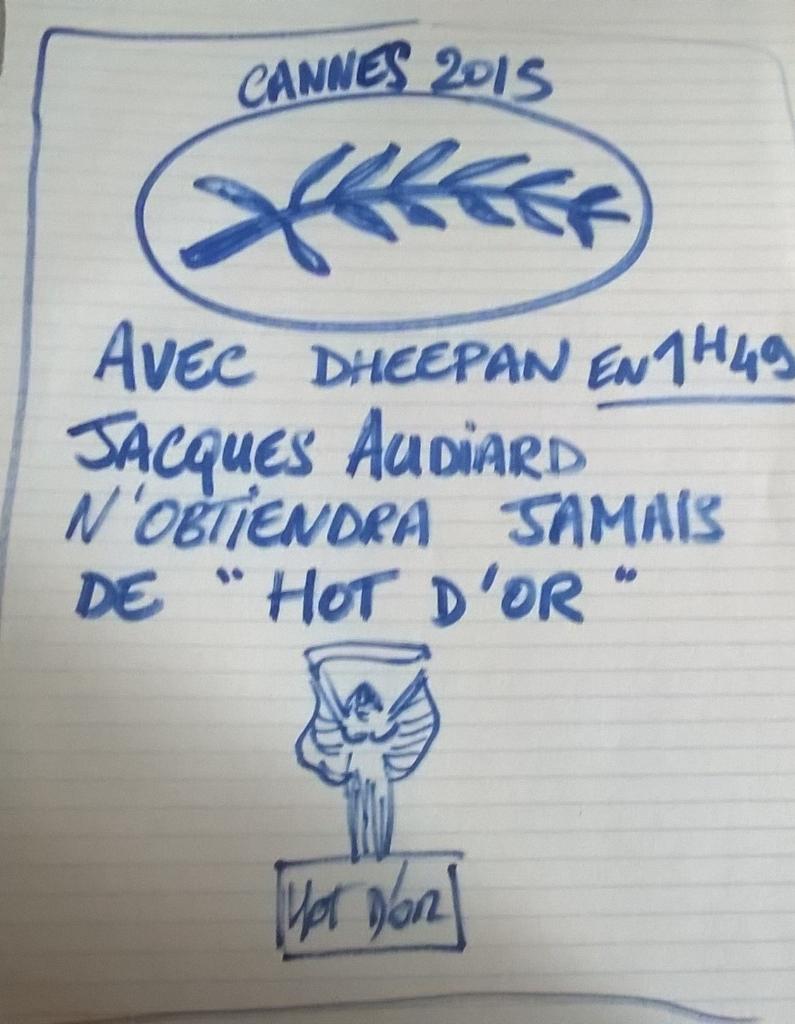 CANNES 2015
AVEC DHEEPAN EN 1H49
JACQUES AUDIARD
N'OBTIENDRA JAMAIS
DE "HOT D'OR"
HOT D'OR